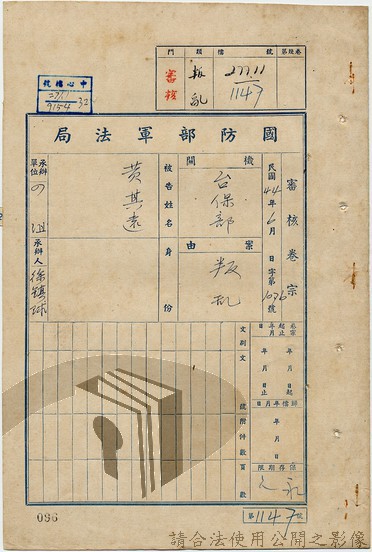 門 類 檔 號 卷總第
審核 叛亂 277.11
1147
中心檔號
9154 32
國防部軍法局
審核卷宗
民國44年6月 日 字第1076號
機關
台保部
案由
叛亂
被告姓名
黃其遠
身份
承辦單位
承辦人 徐鎮球
卷宗起止年月日
年 月 日起
年 月 日止
歸檔年月日
年 月 日
保存期限
永久
文別
文號
附件數
頁數
第1147號
096
請合法使用公開之影像